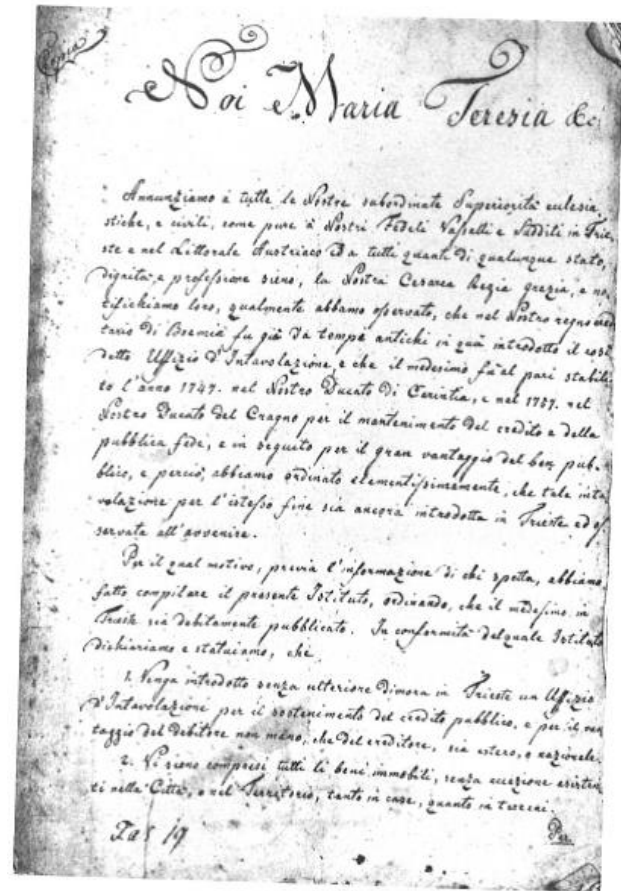 Copia
Noi Maria Teresia &c:
Annunziamo à tutte le Nostre subordinate Superiorità eclesia
stiche, e civili, come pure à Nostri Fedeli Vasselli e Sudditi in Trie
ste e nel Littorale Austriaco ed a tutti quanti di qualunque stato,
dignità, e professione sieno, la Nostra Cesarea Regia grazia, e no
tifichiamo loro, qualmente abbamo osservato, che nel Nostro regno
tario di Boemia fu già da tempi antichi in quà introdotto il cosi
detto Uffizio d'Intavolazione, e che il medesimo fù al pari stabili
to l'anno 1747. nel Nostro Ducato di Carintia, e nel 1757. nel
Nostro Ducato del Cragno per il mantenimento del credito e della
pubblica fede, e in seguito per il gran vantaggio del ben pub-
blico, e perciò, abbiamo ordinato clementissimamente, che tale inta
volazione per l'istesso fine sia ancora introdotta in Trieste ed os
servata all'avvenire.
Per il qual motivo, previa l'informazione di chi spetta, abbiamo
fatto compilare il presente Istituto, ordinando, che il medesimo in
Trieste sia debitamente pubblicato. In conformità del quale Istituto
dichiariamo e statuiamo, che
1. Venga introdotto senza ulteriore dimora in Trieste un Uffizio
d'Intavolazione per il sostenimento del credito pubblico, e per il van
taggio del debitore non meno, che del creditore, sia estero, o nazionale.
2. Vi sieno compresi tutti li beni immobili, senza eccezione esisten
ti nella Città, o nel Territorio, tanto in case, quanto in terreni.
Fas 19
Per